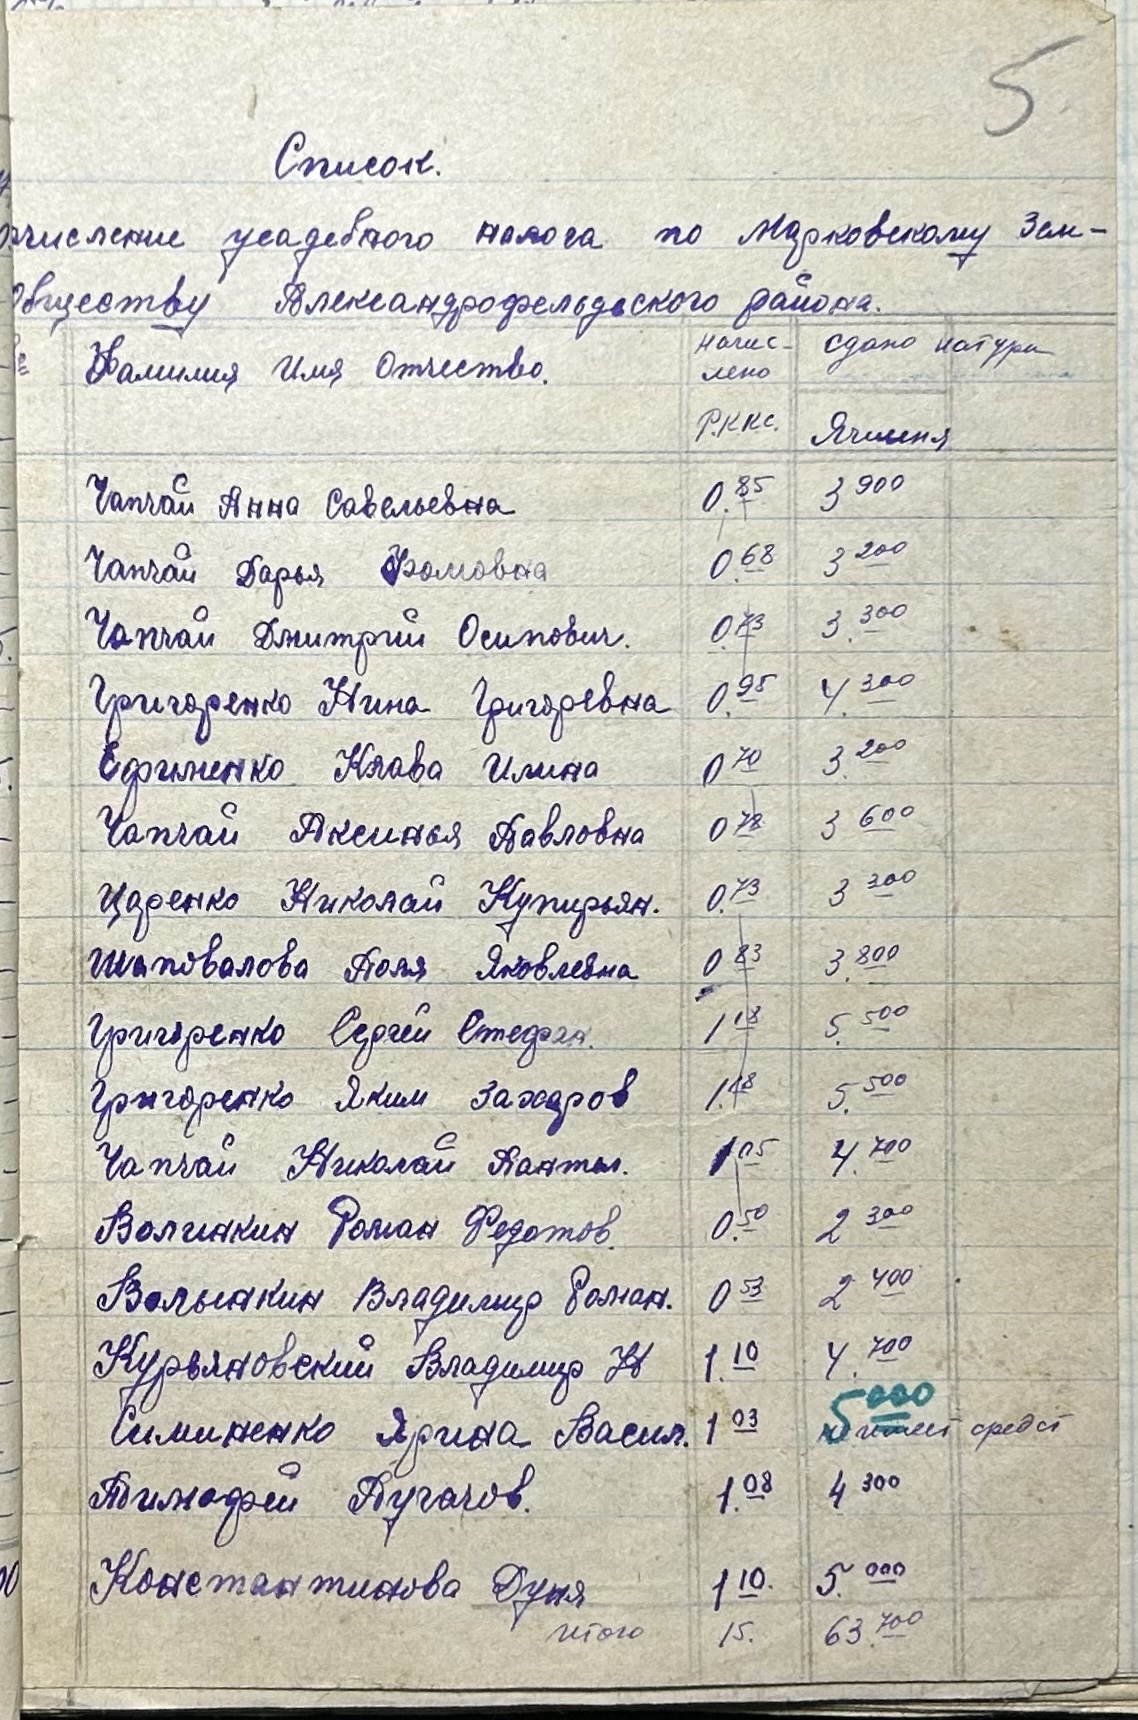 5
Список.
Отчисление усадебного налога по Марковскому Зем-
Обществу Александрофельдского района.
Фамилия Имя Отчество. начис- лено сдано натури
Р.ккс. Ячменя
Чапчай Анна Савельевна 0.85 3 900
Чапчай Дарья Фомовна 0.68 3 200
Чапчай Дмитрий Осипович. 0.73 3.300
Григоренко Нина Григоревна 0.95 4.300
Ефименко Клава Илина 0 70 3.200
Чапчай Аксинья Павловна 0 78 3 600
Царенко Николай Куприрьян. 0.73 3 300
Шаповалова Поля Яковлевна 0 83 3.800
Григоренко Сергей Стефан. 1 18 5.500
Григоренко Яким Захаров 1.18 5.500
Чапчай Николай Пантел. 1 05 4.700
Волинкин Роман Федотов. 0.50 2 300
Волынкин Владимир Роман. 0 53 2 400
Курьяновский Владимир Н 1.10 4.700
Симиненко Ярина Васил. 1 03 5 000 имеет средст
Тимофей Пугачов. 1.08 4 300
Константинова Дуня 1 10. 5.000
итого 15. 63.700